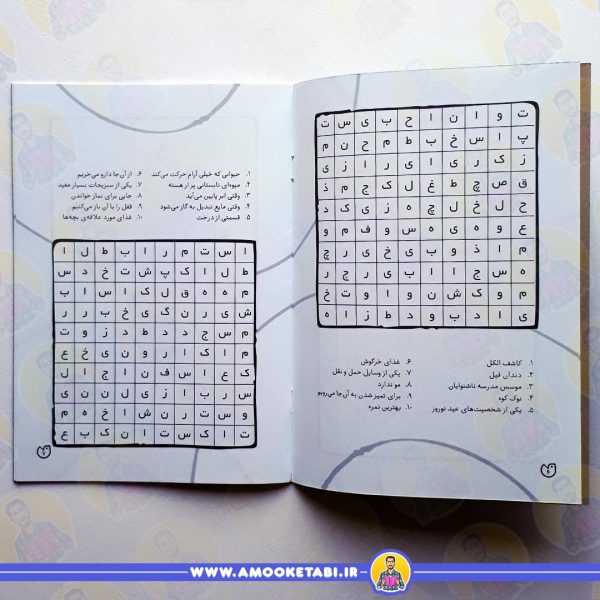 ت و ا ن ا ح ب ی س ت
پ ا س خ ب ط م ح ن م
ز ک ر ی ا ی ر ا ز ی
ق ص چ ط غ ل ک ج م ذ
ح ل خ ل چ ه ز ی ک د
ع و ه ی ه س و ف م و
م ا ذ و ب ی خ ی ر چ
ه س ج ا ا ب ی ر ج ر
م و ک ش ن و ا و ت خ
ی ا د ب و د ط ز ا ه
۱. کاشف الکل
۲. دندان فیل
۳. موسس مدرسه ناشنوایان
۴. نوک کوه
۵. یکی از شخصیت‌های عید نوروز
۶. غذای خرگوش
۷. یکی از وسایل حمل و نقل
۸. مو ندارد
۹. برای تمیز شدن به آن‌جا می‌رویم
۱۰. بهترین نمره
۱. حیوانی که خیلی آرام حرکت می‌کند
۲. میوه‌ای تابستانی پر از هسته
۳. وقتی ابر پایین می‌آید
۴. وقتی مایع تبدیل به گاز می‌شود
۵. قسمتی از درخت
۶. از آن‌جا دارو می‌خریم
۷. یکی از سبزیجات بسیار مفید
۸. جایی برای نماز خواندن
۹. قفل را با آن باز می‌کنیم
۱۰. غذای مورد علاقه‌ی بچه‌ها
ا س ت م ر ا ب ط ل ا
ط ل ا ک پ ش ت خ د س
م ه ه ق ل ک ا س ا ب
ش ی ر ن گ ی خ ب ر ر
م س ج د د ط د ز و ت
م ا ک ا ر و ن ی خ ع
ک ع ا س ف ن ا ج ا ل
س ر ب ا ز ی ل ن ن ی
و س ت ر ن ش ا خ ه م
ت ا ک س ت ا ن ک ب ع
WWW.AMOOKETABI.IR